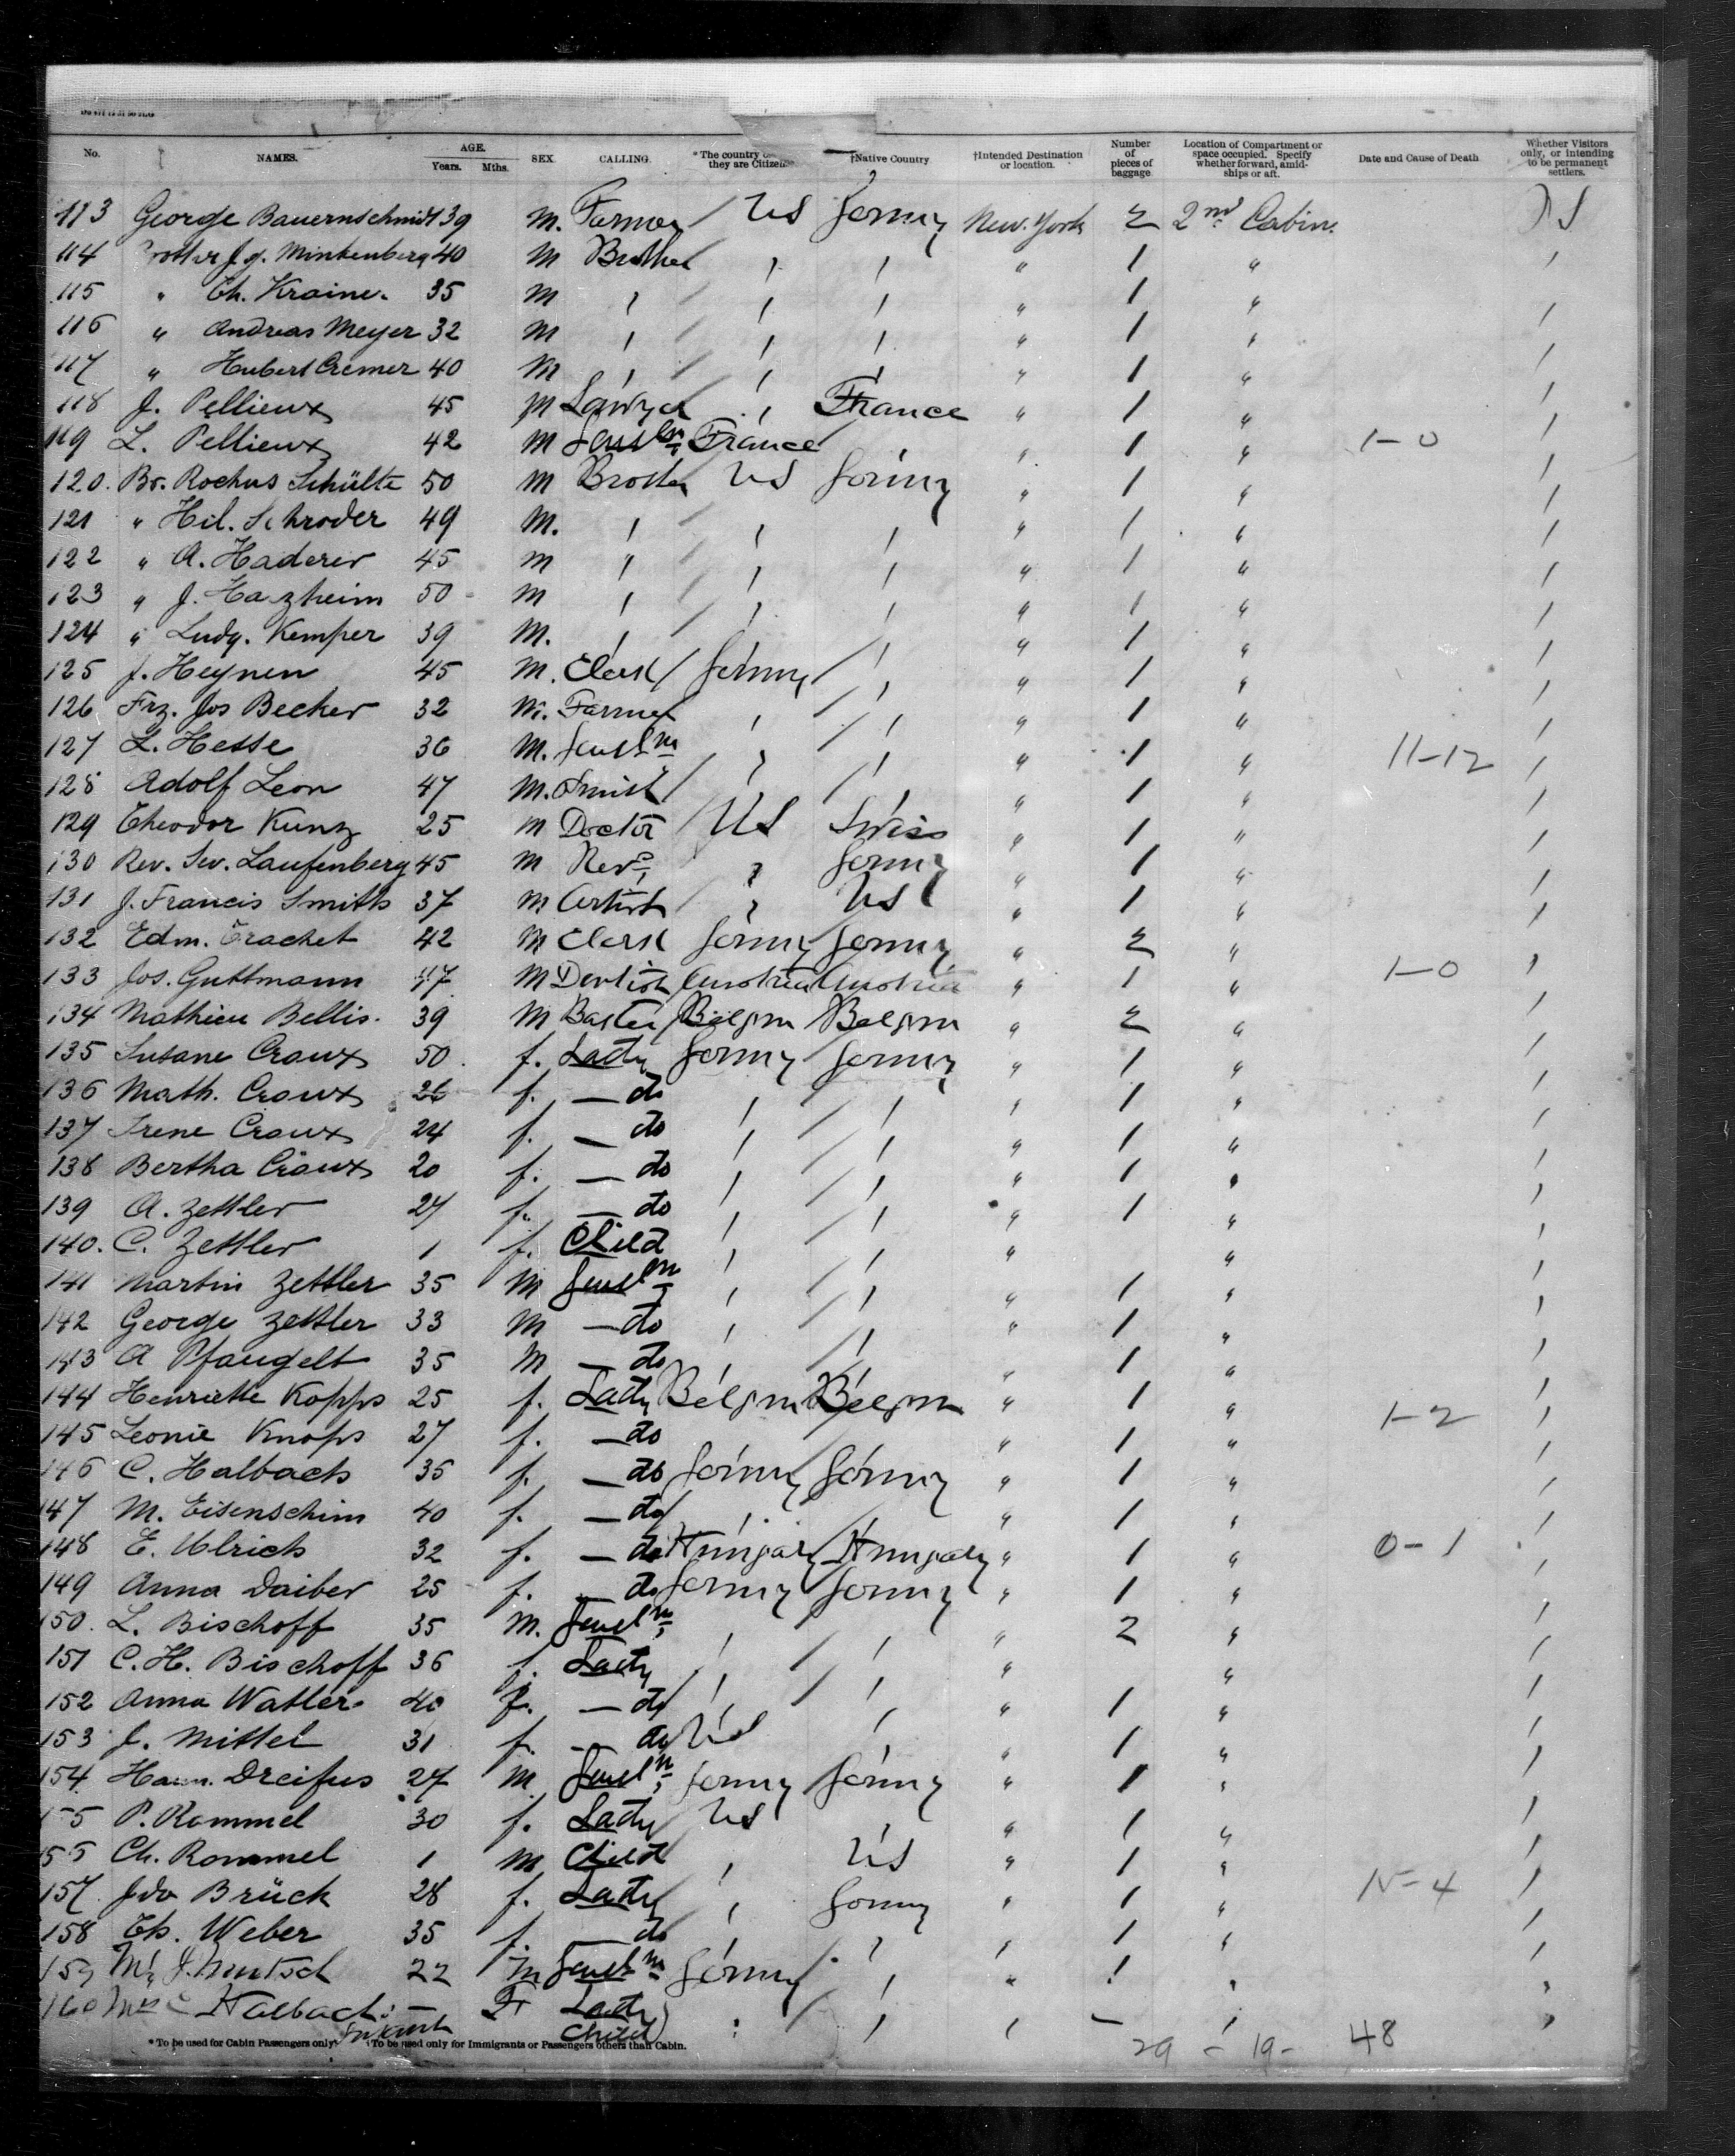 No. NAMES. AGE. Years. Mths. SEX. CALLING. *The country they are Citizens †Native Country †Intended Destination or location. Number of pieces of baggage Location of Compartment or space occupied. Specify whether forward, amidships or aft. Date and Cause of Death Whether Visitors only, or intending to be permanent settlers.
113 George Bauernschmidt 39 M. Farmer US Germy New York 2 2nd Cabin.
114 Brother J. G. Minkenberg 40 M Brother " " " 1 "
115 " Ch. Kraine. 35 M " " " " 1 "
116 " Andreas Meyer 32 M " " " " 1 "
117 " Hubert Cremer 40 M " " " " 1 "
118 J. Pellieux 45 M Lawyer " France " 1 "
119 L. Pellieux 42 M Gentln France " 1 " 1-0
120. Br. Rochus Schülte 50 M Brother US Germy " 1 "
121 " Hil. Schroder 49 M. " " " " 1 "
122 " A. Haderer 45 M " " " " 1 "
123 " J. Hazheim 50 M " " " " 1 "
124 " Ludg. Kemper 39 M. " " " " 1 "
125 J. Heynen 45 M. Clerk Germy " " 1 "
126 Frz. Jos Becker 32 M. Farmer " " " 1 "
127 L. Hesse 36 M. Gentln " " " 1 " 11-12
128 Adolf Leon 47 M. Smith " " " 1 "
129 Theodor Kunz 25 M Doctor US Swiss " 1 "
130 Rev. Sev. Laufenberg 45 M Revd " Germy " 1 "
131 J. Francis Smith 37 M Artist " US " 1 "
132 Edm. Trachet 42 M Clerk Germy Germy " 2 "
133 Jos. Guttmann 47 M Dentist Austria Austria " 1 " 1-0
134 Mathieu Bellis. 39 M Belgm Belgm " 2 "
135 Susane Croux 50 f. Lady Germy Germy " 1 "
136 Math. Croux 26 f. — do " " " 1 "
137 Irene Croux 24 f. — do " " " 1 "
138 Bertha Croux 20 f. — do " " " 1 "
139 A. Zettler 27 f. — do " " " 1 "
140. C. Zettler 1 f. Child " " " "
141 Martin Zettler 35 M Gentln " " " 1 "
142 George Zettler 33 M — do " " " 1 "
143 A Pfaugelt 35 M — do " " " 1 "
144 Henriette Kopps 25 f. Lady Belgm Belgm " 1 " 1-2
145 Leonie Knops 27 f. — do " 1 "
146 C. Halbach 35 f. — do Germy Germy " 1 "
147 M. Eisenschim 40 f. — do " " " 1 "
148 E. Ulrich 32 f. — do Hungary Hungary " 1 " 0-1
149 Anna Daiber 25 f. — do Germy Germy " 1 "
150. L. Bischoff 35 M. Gentln " " " 2 "
151 C. H. Bischoff 36 f. Lady " " " "
152 Anna Watler 40 f. — do " " " 1 "
153 J. Mittel 31 f. — do US " " 1 "
154 Dreifus 27 M Gentln Germy Germy " 1 "
155 P. Rommel 30 f. Lady US " 1 "
156 Ch. Rommel 1 M Child " US " 1 "
157 Ida Brück 28 f. Lady " Germy " 1 " 15-4
158 Th. Weber 35 f. — do " " " 1 "
159 Mr J. 22 M Gentln Germy " " 1 "
160 Mrs C Halbach — F Lady " " " — "
Infant Child 29 - 19 - 48
*To be used for Cabin Passengers only †To be used only for Immigrants or Passengers others than Cabin.